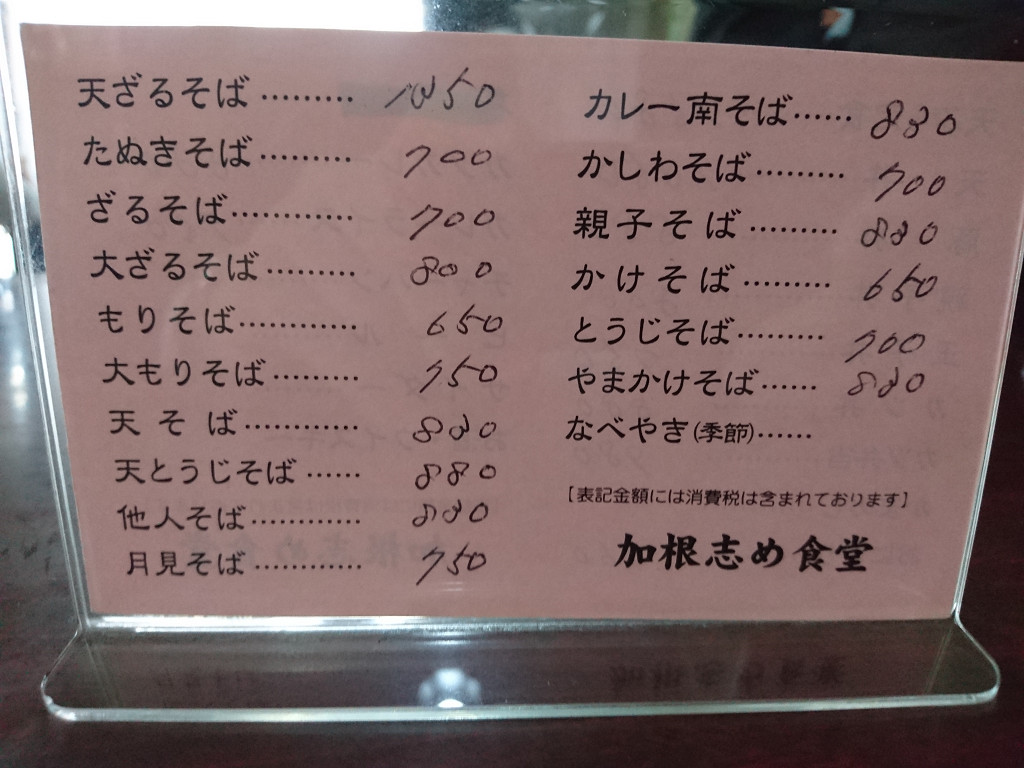 天ざるそば ………
たぬきそば ……… 700
ざるそば ……… 700
大ざるそば ……… 800
もりそば ………… 650
大もりそば ……… 750
天そば ………… 830
天とうじそば …… 880
他人そば ………… 830
月見そば ………… 750
カレー南そば …… 830
かしわそば ……… 700
親子そば ……… 830
かけそば ……… 650
とうじそば ……… 700
やまかけそば …… 830
なべやき (季節) ……
[表記金額には消費税は含まれております]
加根志め食堂